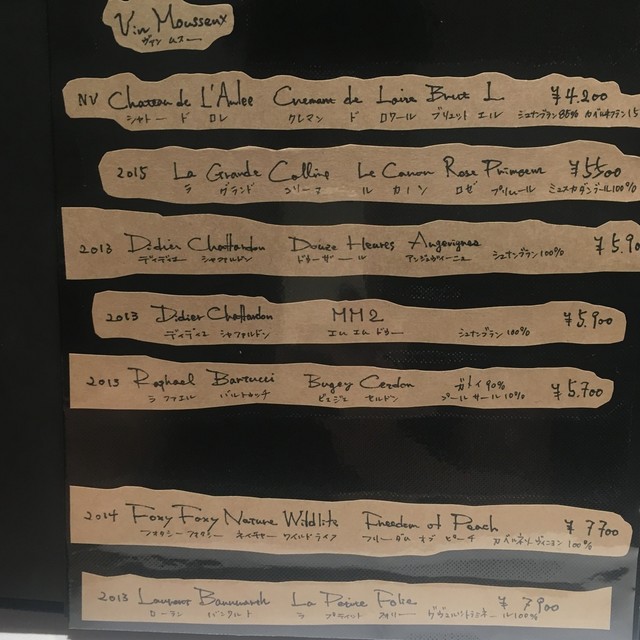 Vin Mousseux
ヴァン ムスー
NV Chateau de L'Aulee Cremant de Loire Brut L ¥4.200
シャトー ド ロレ クレマン ド ロワール ブリュット エル シュナンブラン85% カベルネフラン15
2015 La Grande Colline Le Canon Rose Primeur ¥5500
ラ グランド コリーヌ ル カノン ロゼ プリムール ミュスカダンブール100%
2013 Didier Chaffardon Douze Heures Angevignes ¥5.90
ディディエ シャファルドン ドゥーザール アンジュヴィーニュ シュナンブラン100%
2013 Didier Chaffardon MM2 ¥5.900
ディディエ シャファルドン エム エム ドゥー シュナンブラン 100%
2013 Raphael Bartucci Bugey Cerdon ガメイ90% ¥5.700
ラファエル バルトゥッチ ビュジェ セルドン プールサール10%
2014 Foxy Foxy Nature Wildlife Freedom of Peach ¥7700
フォクシーフォクシー ネイチャー ワイルドライフ フリーダム オブ ピーチ カベルネソーヴィニヨン100%
2013 Laurent Bannwarth La Petite Folie ¥7900
ローラン バンワルト ラ プティット フォリー ゲヴュルツトラミネール100%